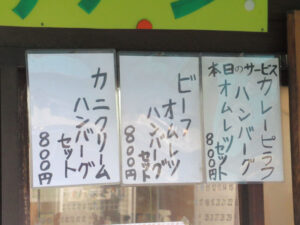 本日のサービス
カレーピラフ
ハンバーグ
オムレツ
セット
800円
ビーフ
オムレツ
ハンバーグ
セット
800円
カニクリーム
ハンバーグ
セット
800円